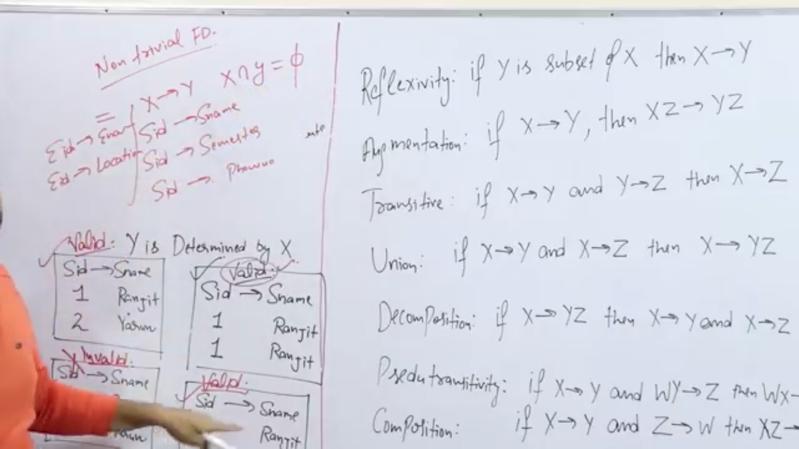 Non trivial FD.
= X→Y X∩y=ϕ
Eid→Enam
Eid→Location
Sid→Sname
Sid→Semester
Sid→Phonno
Valid: Y is Determined by X
Sid→Sname
1 Ranjit
2 Varun
Valid:
Sid→Sname
1 Ranjit
1 Ranjit
Invalid:
Sid→Sname
Varun
Valid
Sid→Sname
Ranjit
Reflexivity: if Y is subset of X then X→Y
Augmentation: if X→Y, then XZ→YZ
Transitive: if X→Y and Y→Z then X→Z
Union: if X→Y and X→Z then X→YZ
Decomposition: if X→YZ then X→Y and X→Z
Psedutransitivity: if X→Y and WY→Z then WX→
Composition: if X→Y and Z→W then XZ→